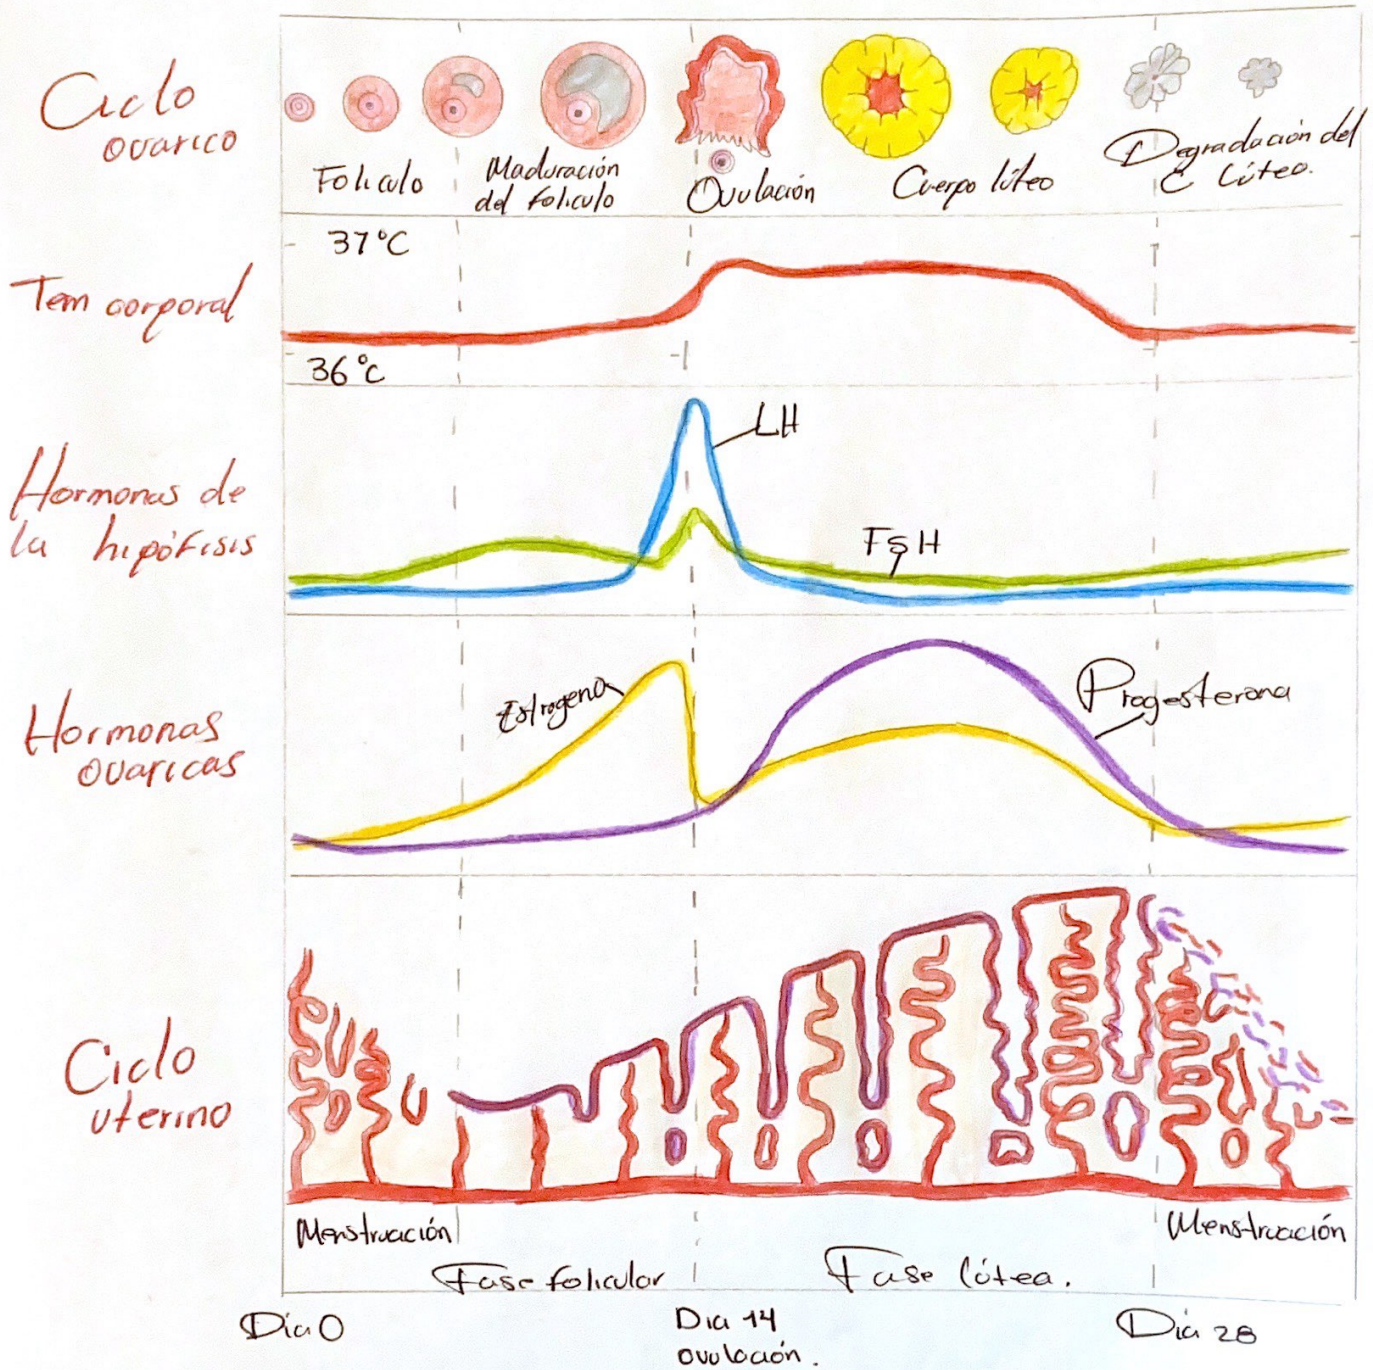 Ciclo
ovarico
Folículo
Maduración
del folículo
Ovulación
Cuerpo lúteo
Degradación del
C Lúteo.
37°C
Tem corporal
36°C
LH
Hormonas de
la hipófisis
FSH
Estrogeno
Progesterona
Hormonas
ovaricas
Ciclo
uterino
Menstruación
Menstruación
Fase folicular
Fase lútea.
Día 0
Día 14
ovulación.
Día 28